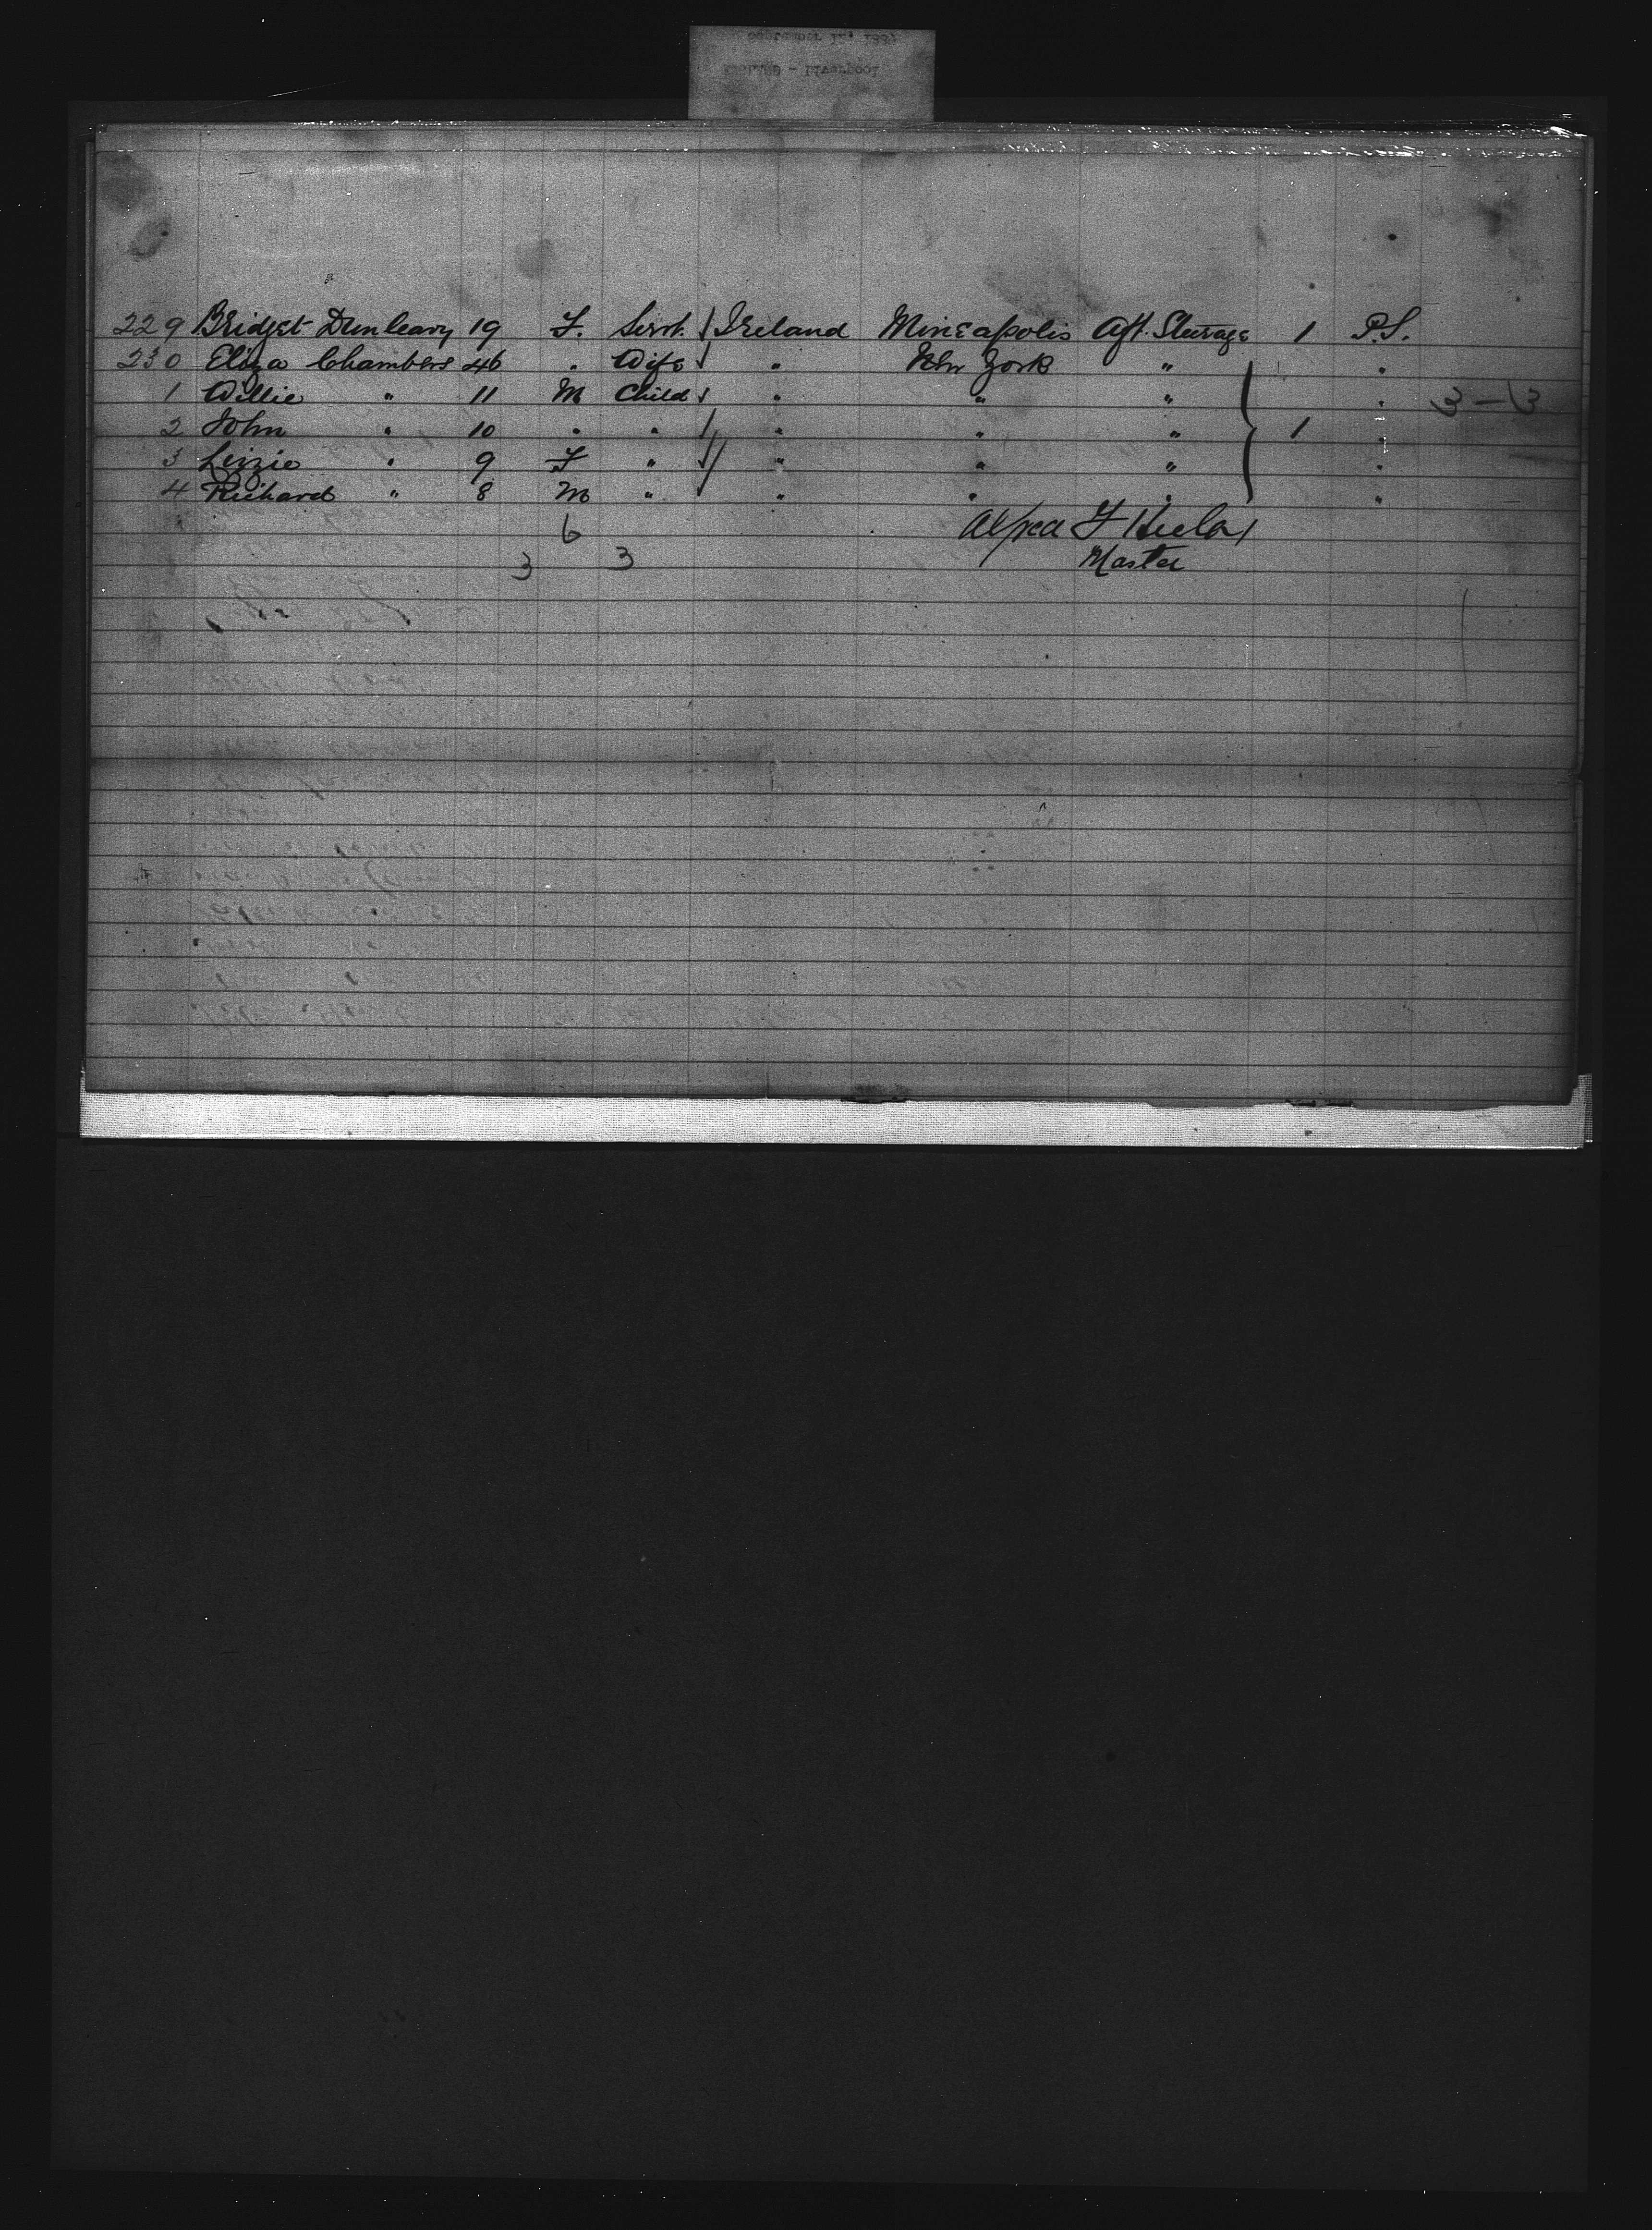 Liverpool
229 Bridget Dunleavy 19 F. Servt. Ireland Mineapolis Aft. Steerage 1 P.S.
230 Eliza Chambers 46 " Wife " New York " "
1 Willie " 11 M Child " " " " 3-3
2 John " 10 " " " " " 1 "
3 Lizzie " 9 F " " " " "
4 Richard " 8 M " " " " "
6 Alfred F
3 3 Master